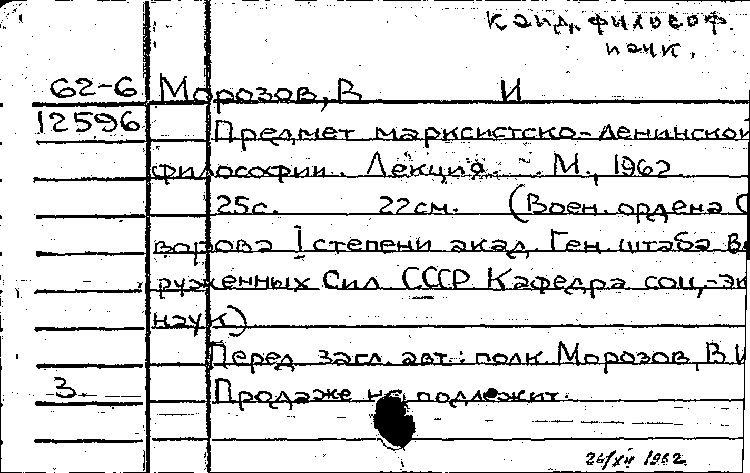 канд. философ.
наук.
62-6 Морозов, В И
12596 Предмет марксистско-ленинской
философии. Лекция. - М., 1962.
25с. 22см. (Воен. ордена С
ворова I степени акад. Ген. штаба Во
руженных Сил СССР Кафедра соц.-эк
наук)
Перед загл. авт.: полк. Морозов, В.И
3. Продаже не подлежит.
26/XII 1962